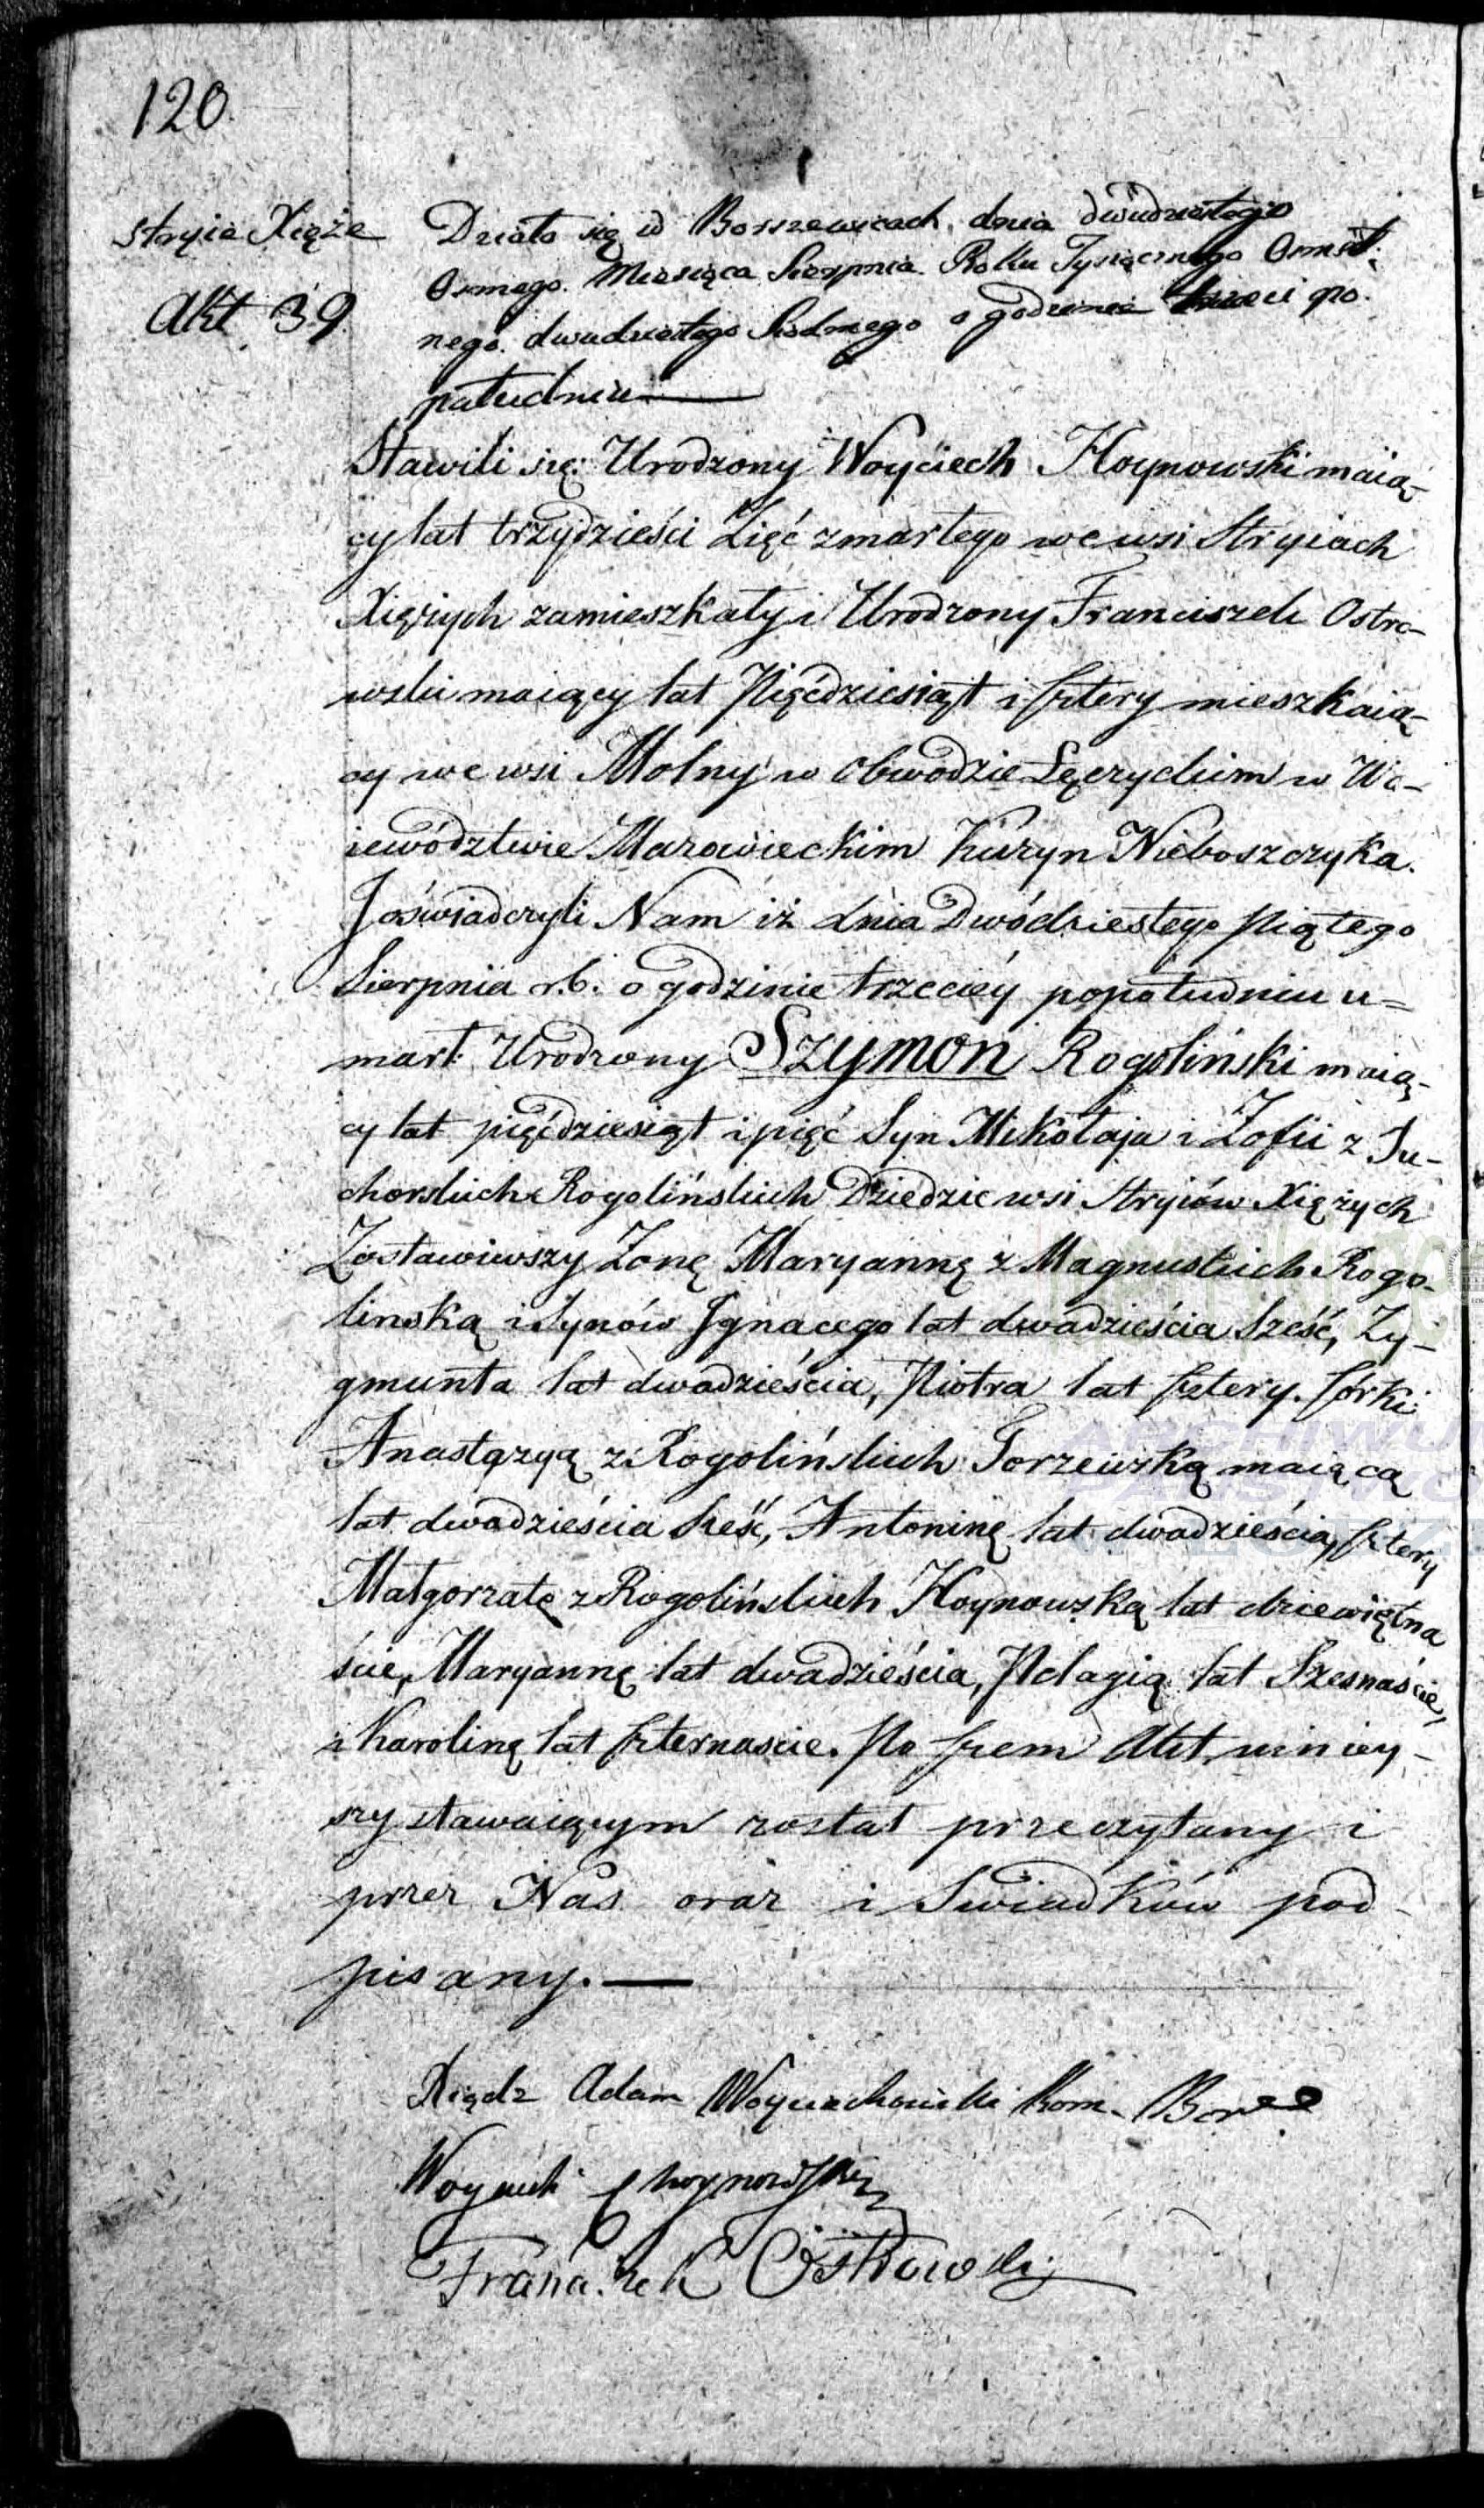 120.
Stryie Xięże
Akt 39
Działo się w Borszewicach dnia dwudziestego
Osmego Miesiąca Sierpnia Roku Tysiącznego Osmset,
nego dwudziestego Siodmego o godzinie trzeci po
południu —
Stawili się: Urodzony Woyciech Hoynowski maią-
cy lat trzydzieści Zięć zmarłego we wsi Stryiach
Xiężych zamieszkały i Urodzony Franciszek Ostro-
wski maiący lat Pięćdziesiąt i Cztery mieszkaią-
cy we wsi Molny w Obwodzie Łęczyckim w Wo-
iewództwie Mazowieckim Kuzyn Nieboszczyka.
I oświadczyli Nam iż dnia Dwódziestego Piątego
Sierpnia r.b. o godzinie trzeciey popołudniu u=
marł Urodzony Szymon Rogoliński maią-
cy lat pięćdziesiąt i pięć Syn Mikołaja i Zofii z Su-
chorskich Rogolińskich Dziedzic wsi Stryiów Xiężych
Zostawiwszy Zonę Maryannę z Magnuskich Rogo-
linską i Synów Ignacego lat dwadzieścia Sześć, Zy-
gmunta lat dwadzieścia, Piotra lat Cztery. Córki
Anastazyą z Rogolińskich Gorzewską maiącą
lat dwadzieścia Sześć, Antoninę lat dwadzieścia Cztery
Małgorzatę z Rogolińskich Hoynowską lat dziewiętna
ście, Maryannę lat dwadzieścia, Pelagią lat Szesnaście,
i Karolinę lat Czternascie. Po Czem Akt niniey-
szy stawaiącym został przeczytany i
przez Nas oraz i Swiadków pod-
pisany. —
Xiądz Adam Woyciechowski Kom.
Woyciech Choynowski
Franciszek Ostrowski
ARCHIWUM
PAŃSTWO